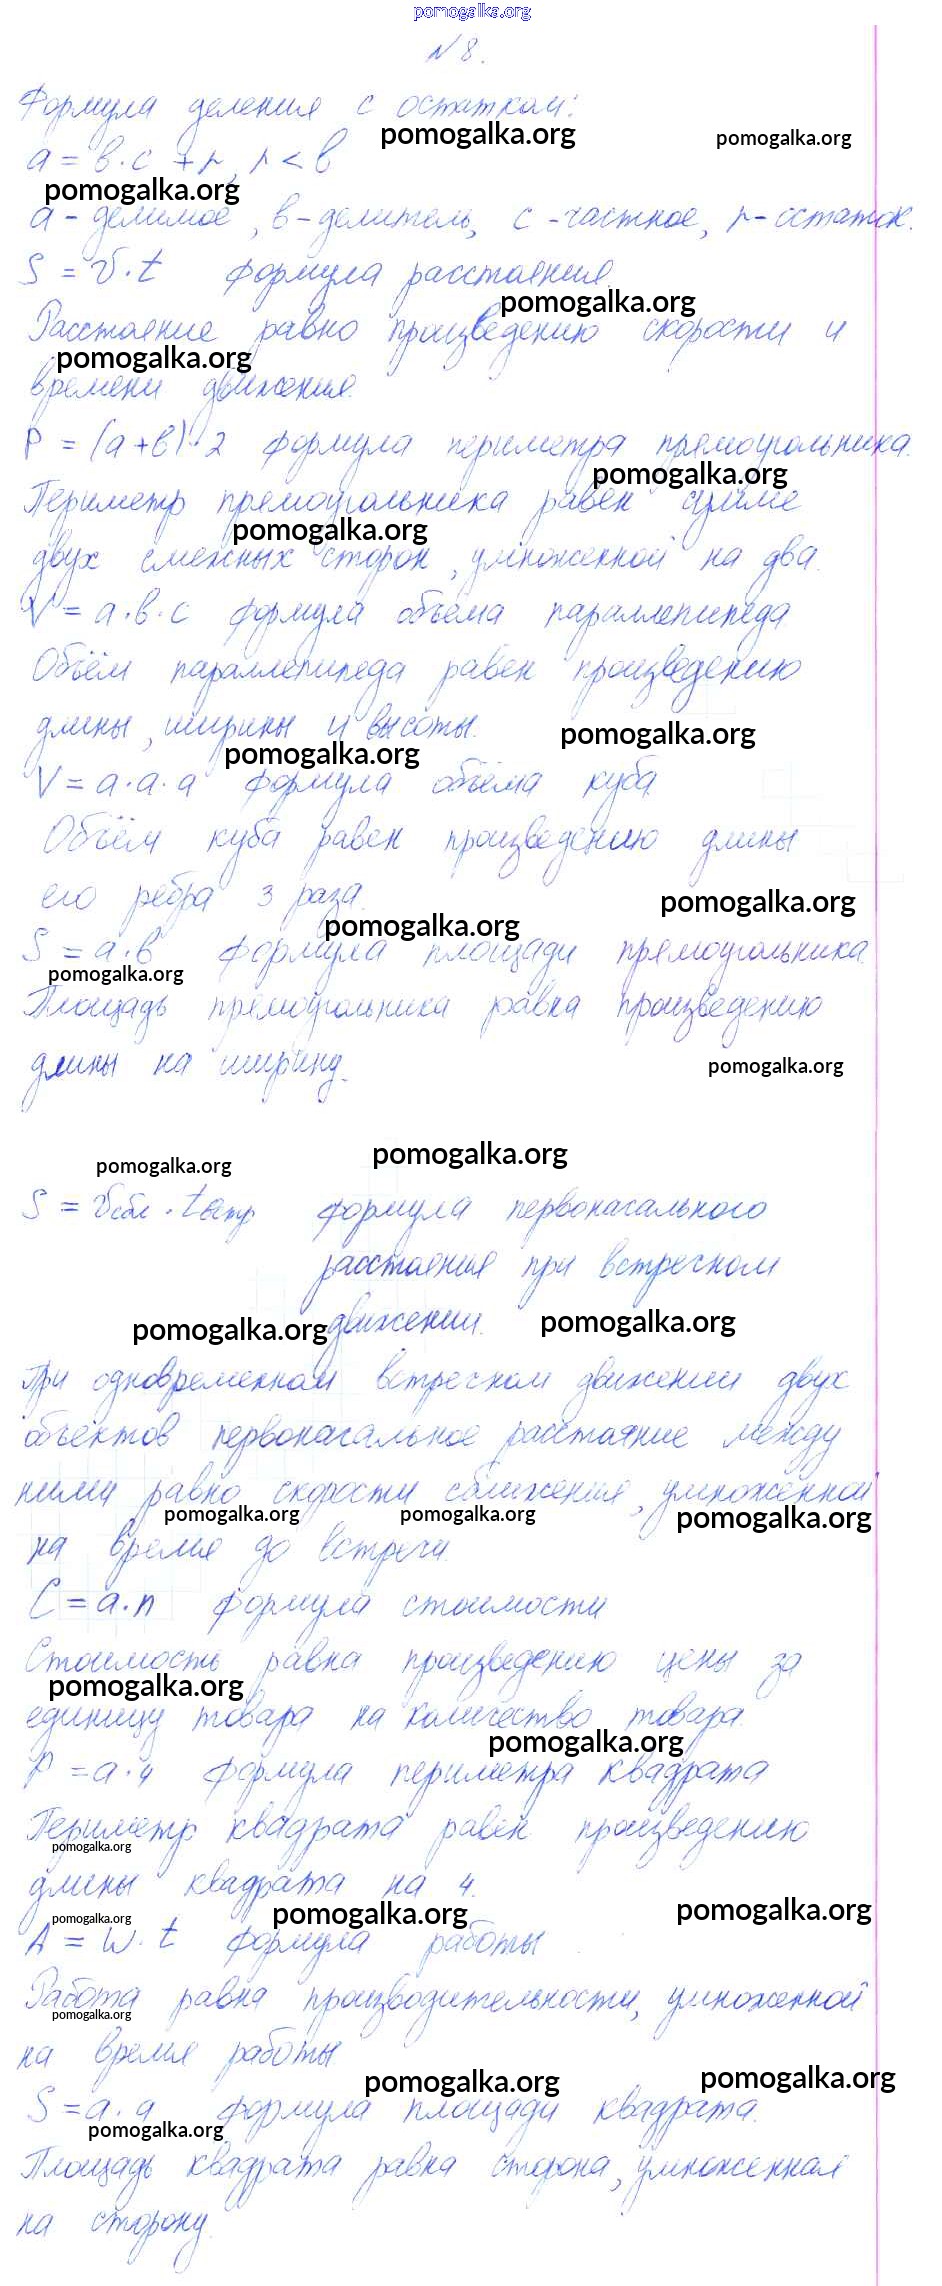 pomogalka.org
№ 8.
Формула деления с остатком:
pomogalka.org pomogalka.org
a = b · c + r, r < b
pomogalka.org
a - делимое, b - делитель, c - частное, r - остаток.
S = v · t формула расстояния.
pomogalka.org
Расстояние равно произведению скорости и
pomogalka.org
времени движения.
P = (a + b) · 2 формула периметра прямоугольника.
pomogalka.org
Периметр прямоугольника равен сумме
pomogalka.org
двух смежных сторон, умноженной на два.
V = a · b · c формула объёма параллепипеда
Объём параллепипеда равен произведению
длины, ширины и высоты.
pomogalka.org pomogalka.org
V = a · a · a формула объёма куба
Объём куба равен произведению длины
его ребра 3 раза.
pomogalka.org pomogalka.org
S = a · b формула площади прямоугольника.
pomogalka.org
Площадь прямоугольника равна произведению
длины на ширину.
pomogalka.org
pomogalka.org pomogalka.org
S = vсбл · tвстр формула первоначального
расстояния при встречном
pomogalka.org движении. pomogalka.org
При одновременном встречном движении двух
объектов первоначальное расстояние между
ними равно скорости сближения, умноженной
pomogalka.org pomogalka.org pomogalka.org
на время до встречи.
C = a · n формула стоимости
Стоимость равна произведению цены за
pomogalka.org
единицу товара на количество товара.
pomogalka.org
P = a · 4 формула периметра квадрата
Периметр квадрата равен произведению
pomogalka.org
длины квадрата на 4.
pomogalka.org pomogalka.org pomogalka.org
A = w · t формула работы
Работа равна производительности, умноженной
pomogalka.org
на время работы
pomogalka.org pomogalka.org
S = a · a формула площади квадрата.
pomogalka.org
Площадь квадрата равна сторона, умноженная
на сторону.